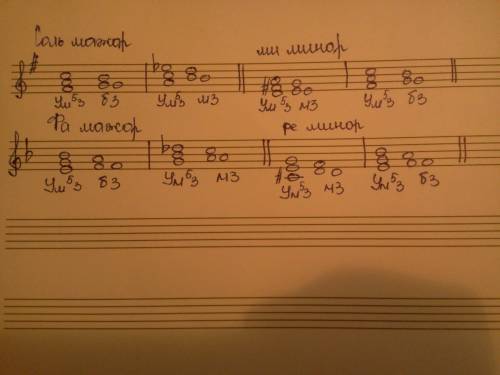 Соль мажор ми минор
Ум53 б3 Ум53 м3 Ум53 м3 Ум53 б3
Фа мажор ре минор
Ум53 б3 Ум53 м3 Ум53 м3 Ум53 б3